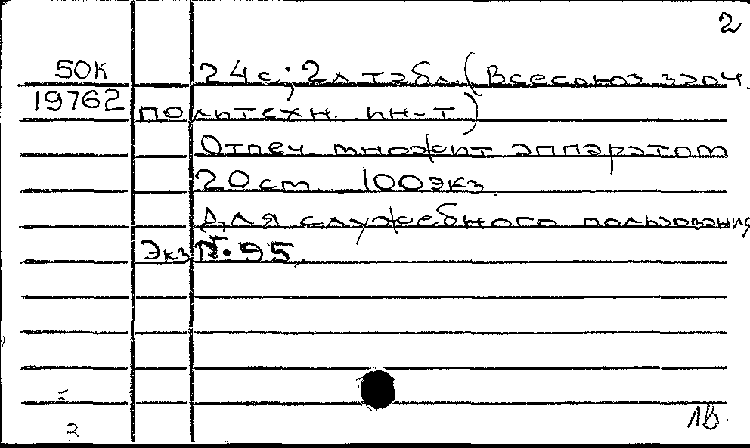 2
50К 24с; 2л табл. (Всесоюз заоч.
19762 политехн. ин-т)
Отпеч. множит аппаратом
20 см 100 экз.
Для служебного пользования
Экз № 95.
2
1В